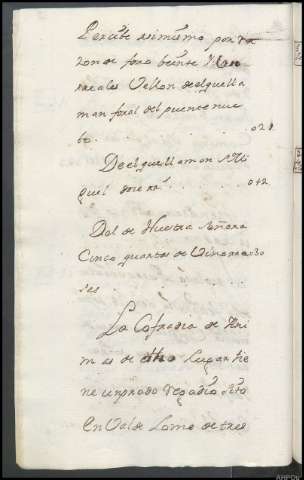 Perciue asimismo por ra
zon de foro beinte
reales Vellon de el que lla
man foral del puente nue
bo . . . 020
De el que llaman Mi
guel doce rs . . . 012
Dal de Nuestra Señora
Cinco quartas de Vino
ses
La Cofradia de Ani
mas de dho Lugar tie
ne un prado Regadio sito
En Val de Lomo de tres